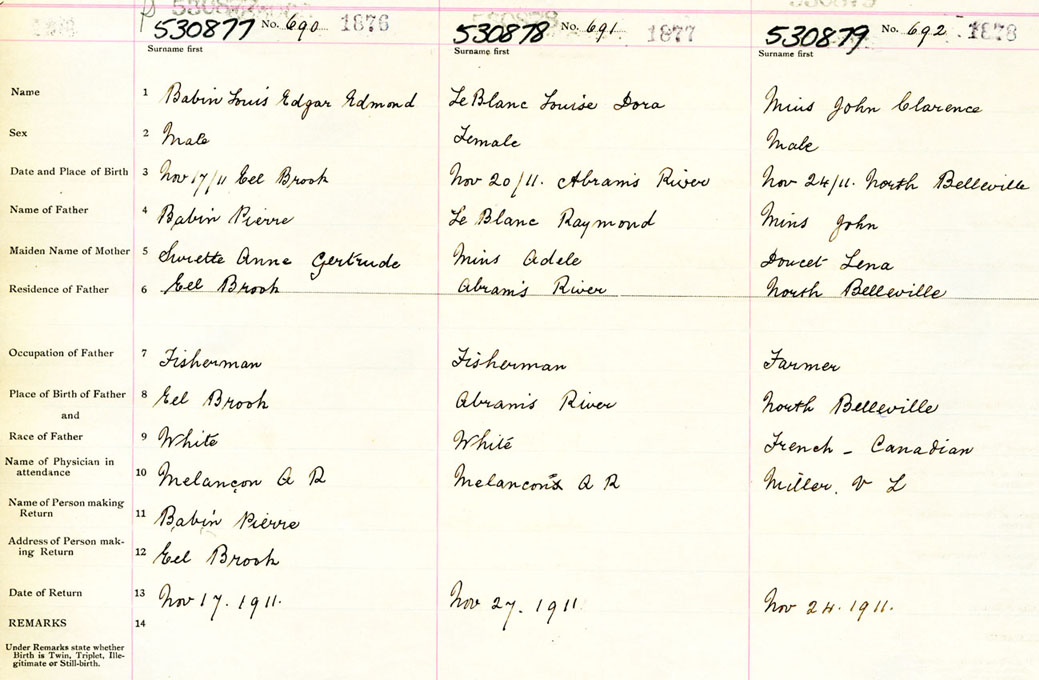 530877 No. 690 1876 530878 No. 691 1877 530879 No. 692 1878
Surname first Surname first Surname first
Name 1 Babin Louis Edgar Edmond LeBlanc Louise Dora Mius John Clarence
Sex 2 Male Female Male
Date and Place of Birth 3 Nov 17/11 Eel Brook Nov 20/11. Abram's River Nov 24/11. North Belleville
Name of Father 4 Babin Pierre Le Blanc Raymond Mius John
Maiden Name of Mother 5 Surette Anne Gertrude Mius Adele Doucet Lena
Residence of Father 6 Eel Brook Abram's River North Belleville
Occupation of Father 7 Fisherman Fisherman Farmer
Place of Birth of Father 8 Eel Brook Abram's River North Belleville
and
Race of Father 9 White White French - Canadian
Name of Physician in
attendance 10 Melançon A R Melancon A R Miller. V L
Name of Person making
Return 11 Babin Pierre
Address of Person mak-
ing Return 12 Eel Brook
Date of Return 13 Nov 17. 1911. Nov 27. 1911 Nov 24. 1911.
REMARKS 14
Under Remarks state whether
Birth is Twin, Triplet, Ille-
gitimate or Still-birth.